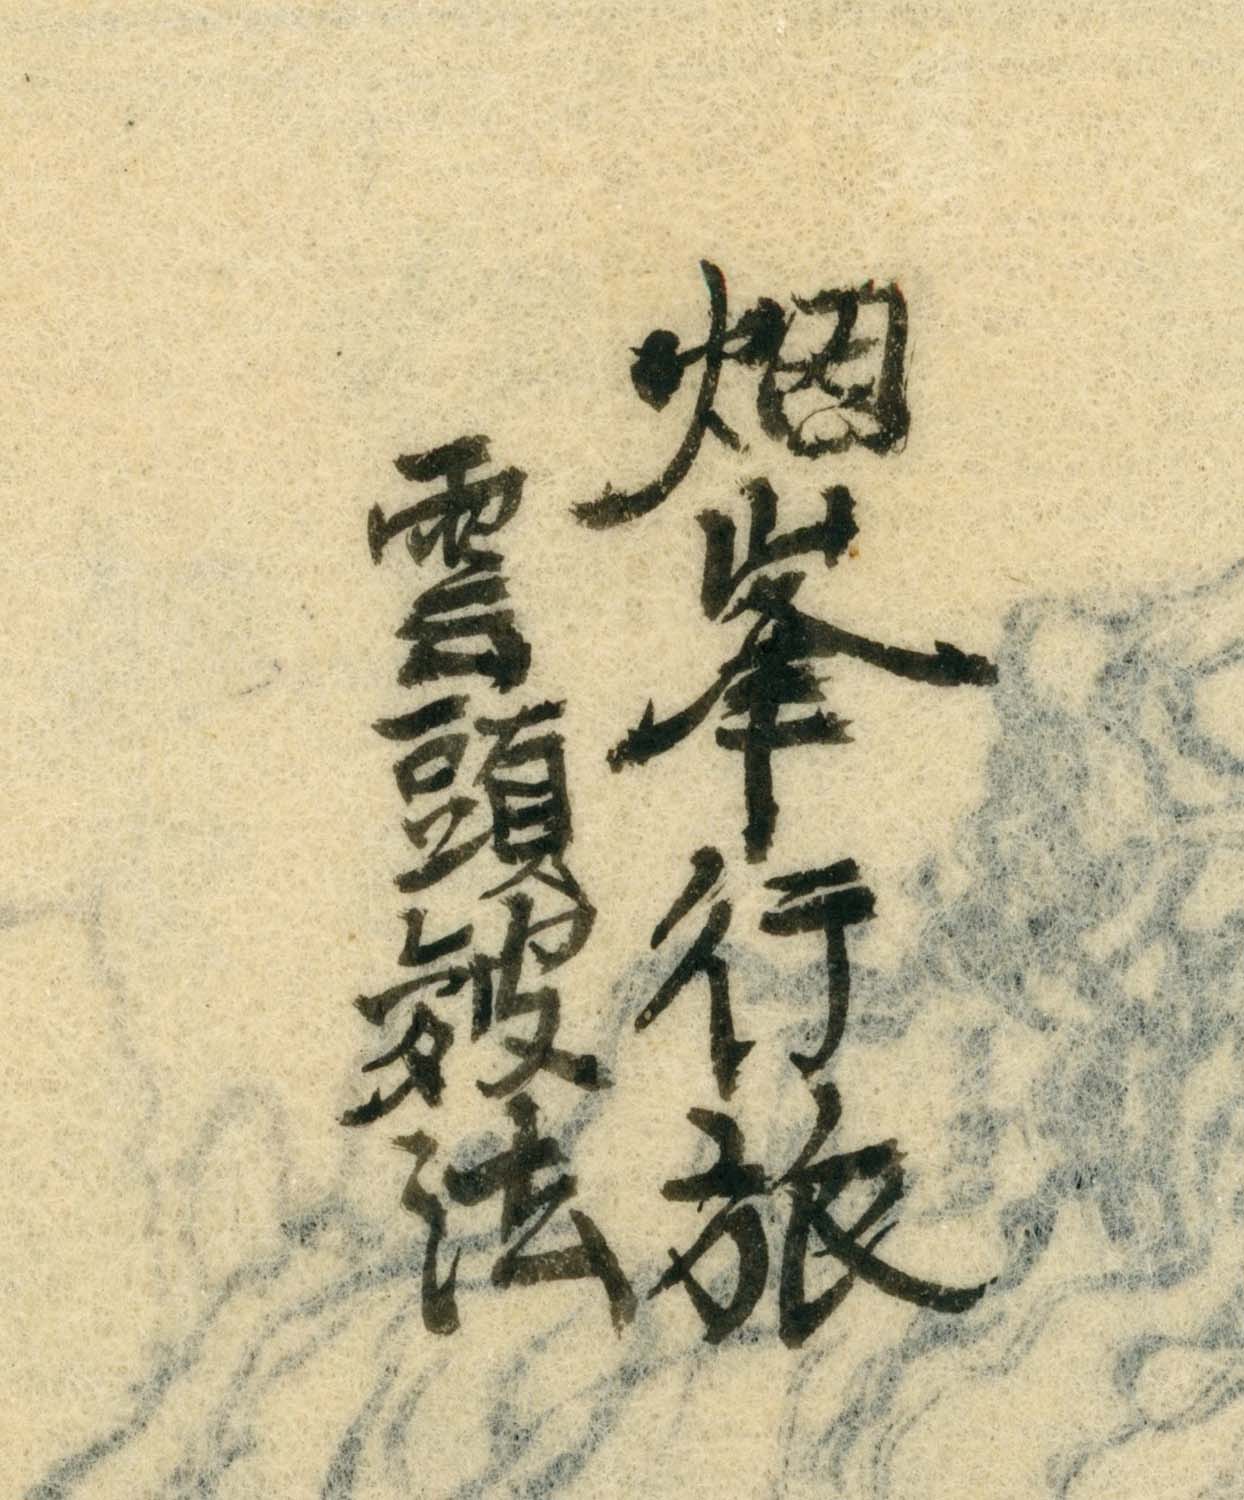 烟峯行旅
雲頭皴法